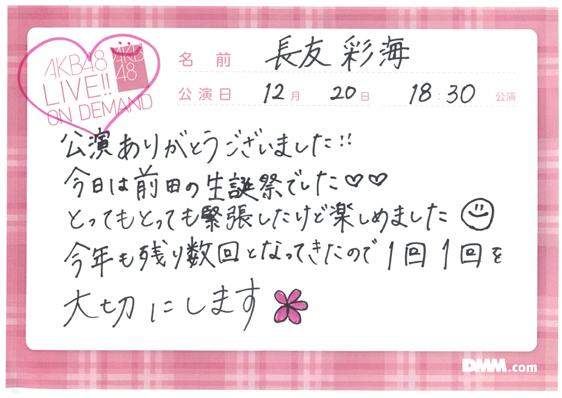 AKB48
LIVE!!
ON DEMAND
AKB
48
名前 長友彩海
公演日 12月 20日 18:30 公演
公演ありがとうございました!!
今日は前田の生誕祭でした♡♡
とってもとっても緊張したけど楽しめました
今年も残り数回となってきたので1回1回を
大切にします
DMM.com